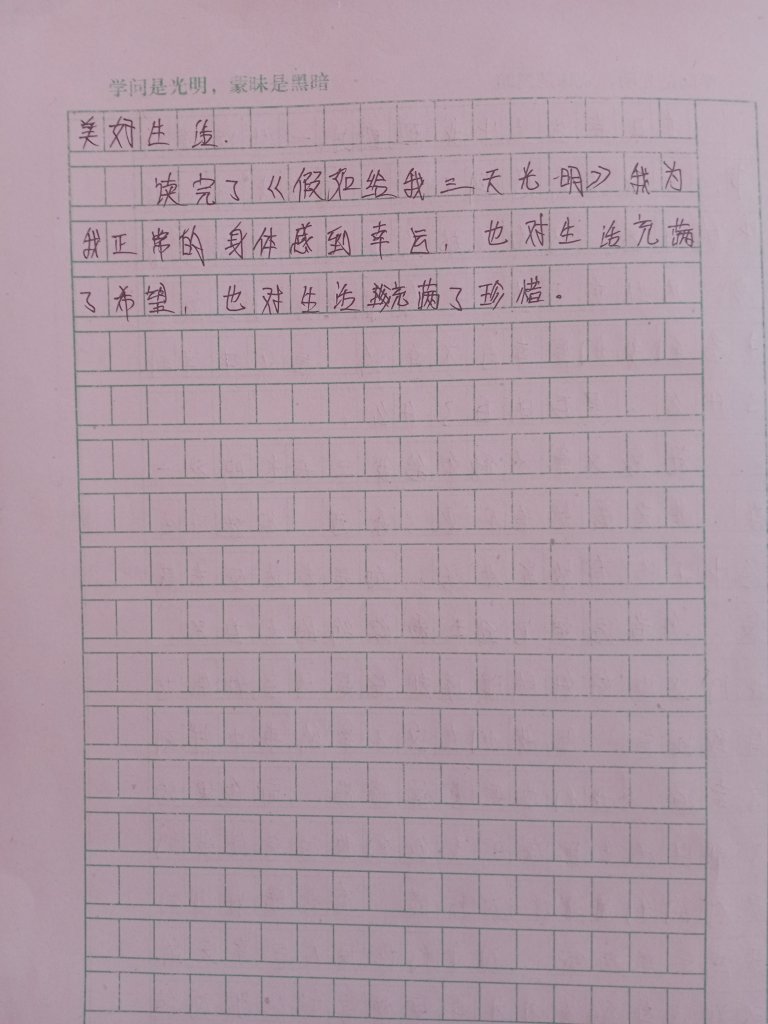 学问是光明，蒙昧是黑暗
美好生活.
读完了《假如给我三天光明》我为
我正常的身体感到幸运，也对生活充满
了希望，也对生活充满了珍惜。